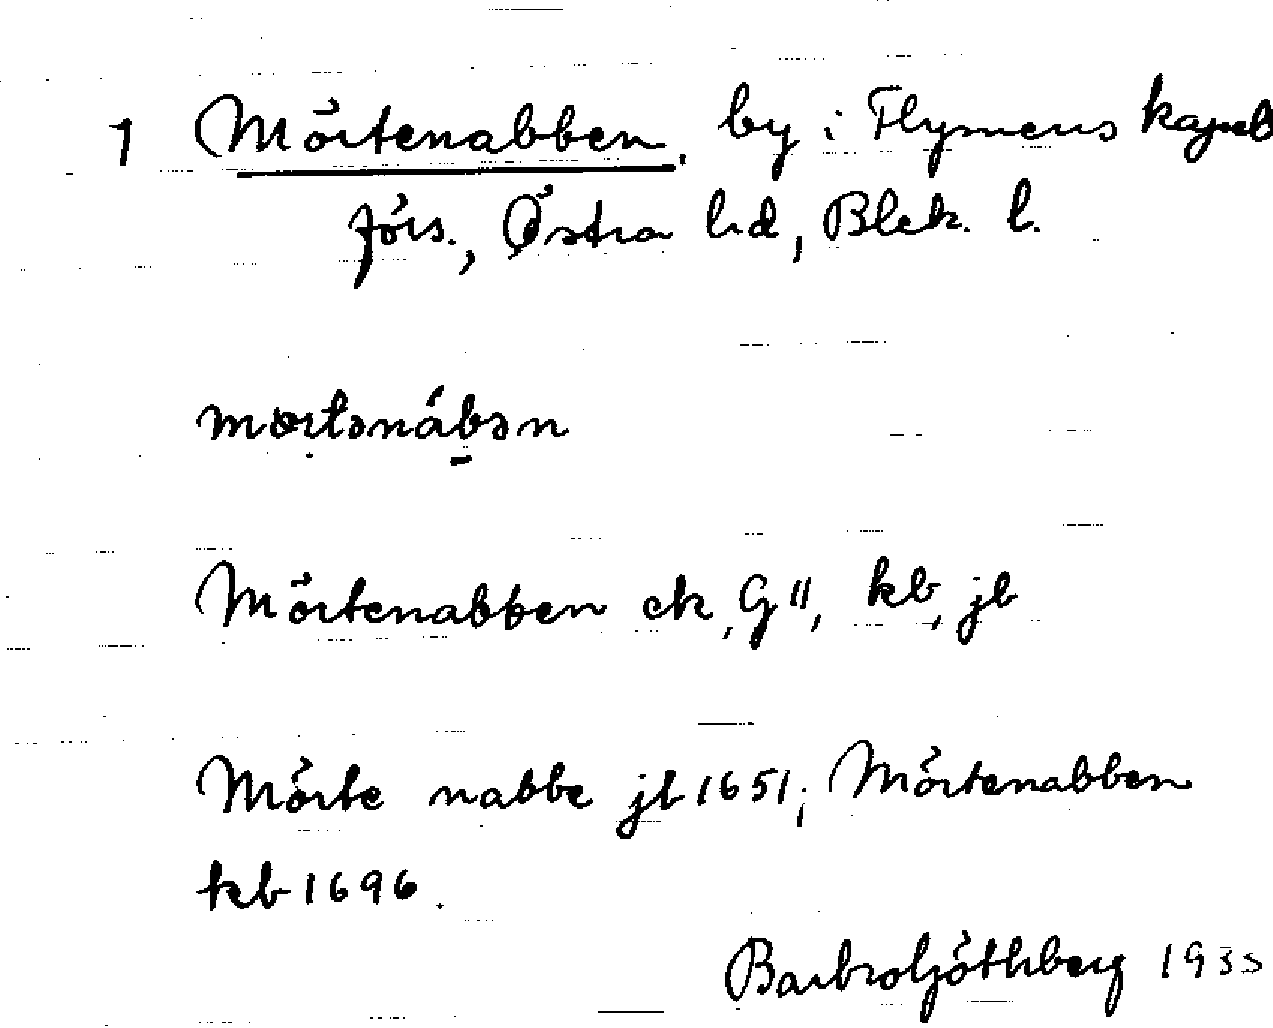 1 Mörtenabben, by i Flymens kapell
förs., Östra hd, Blek. l.
mœrtənábən
Mörtenabben ek, G", kb, jb
Mörte nabbe jb 1651; Mörtenabben
kb 1696.
Barbro Göthberg 1935